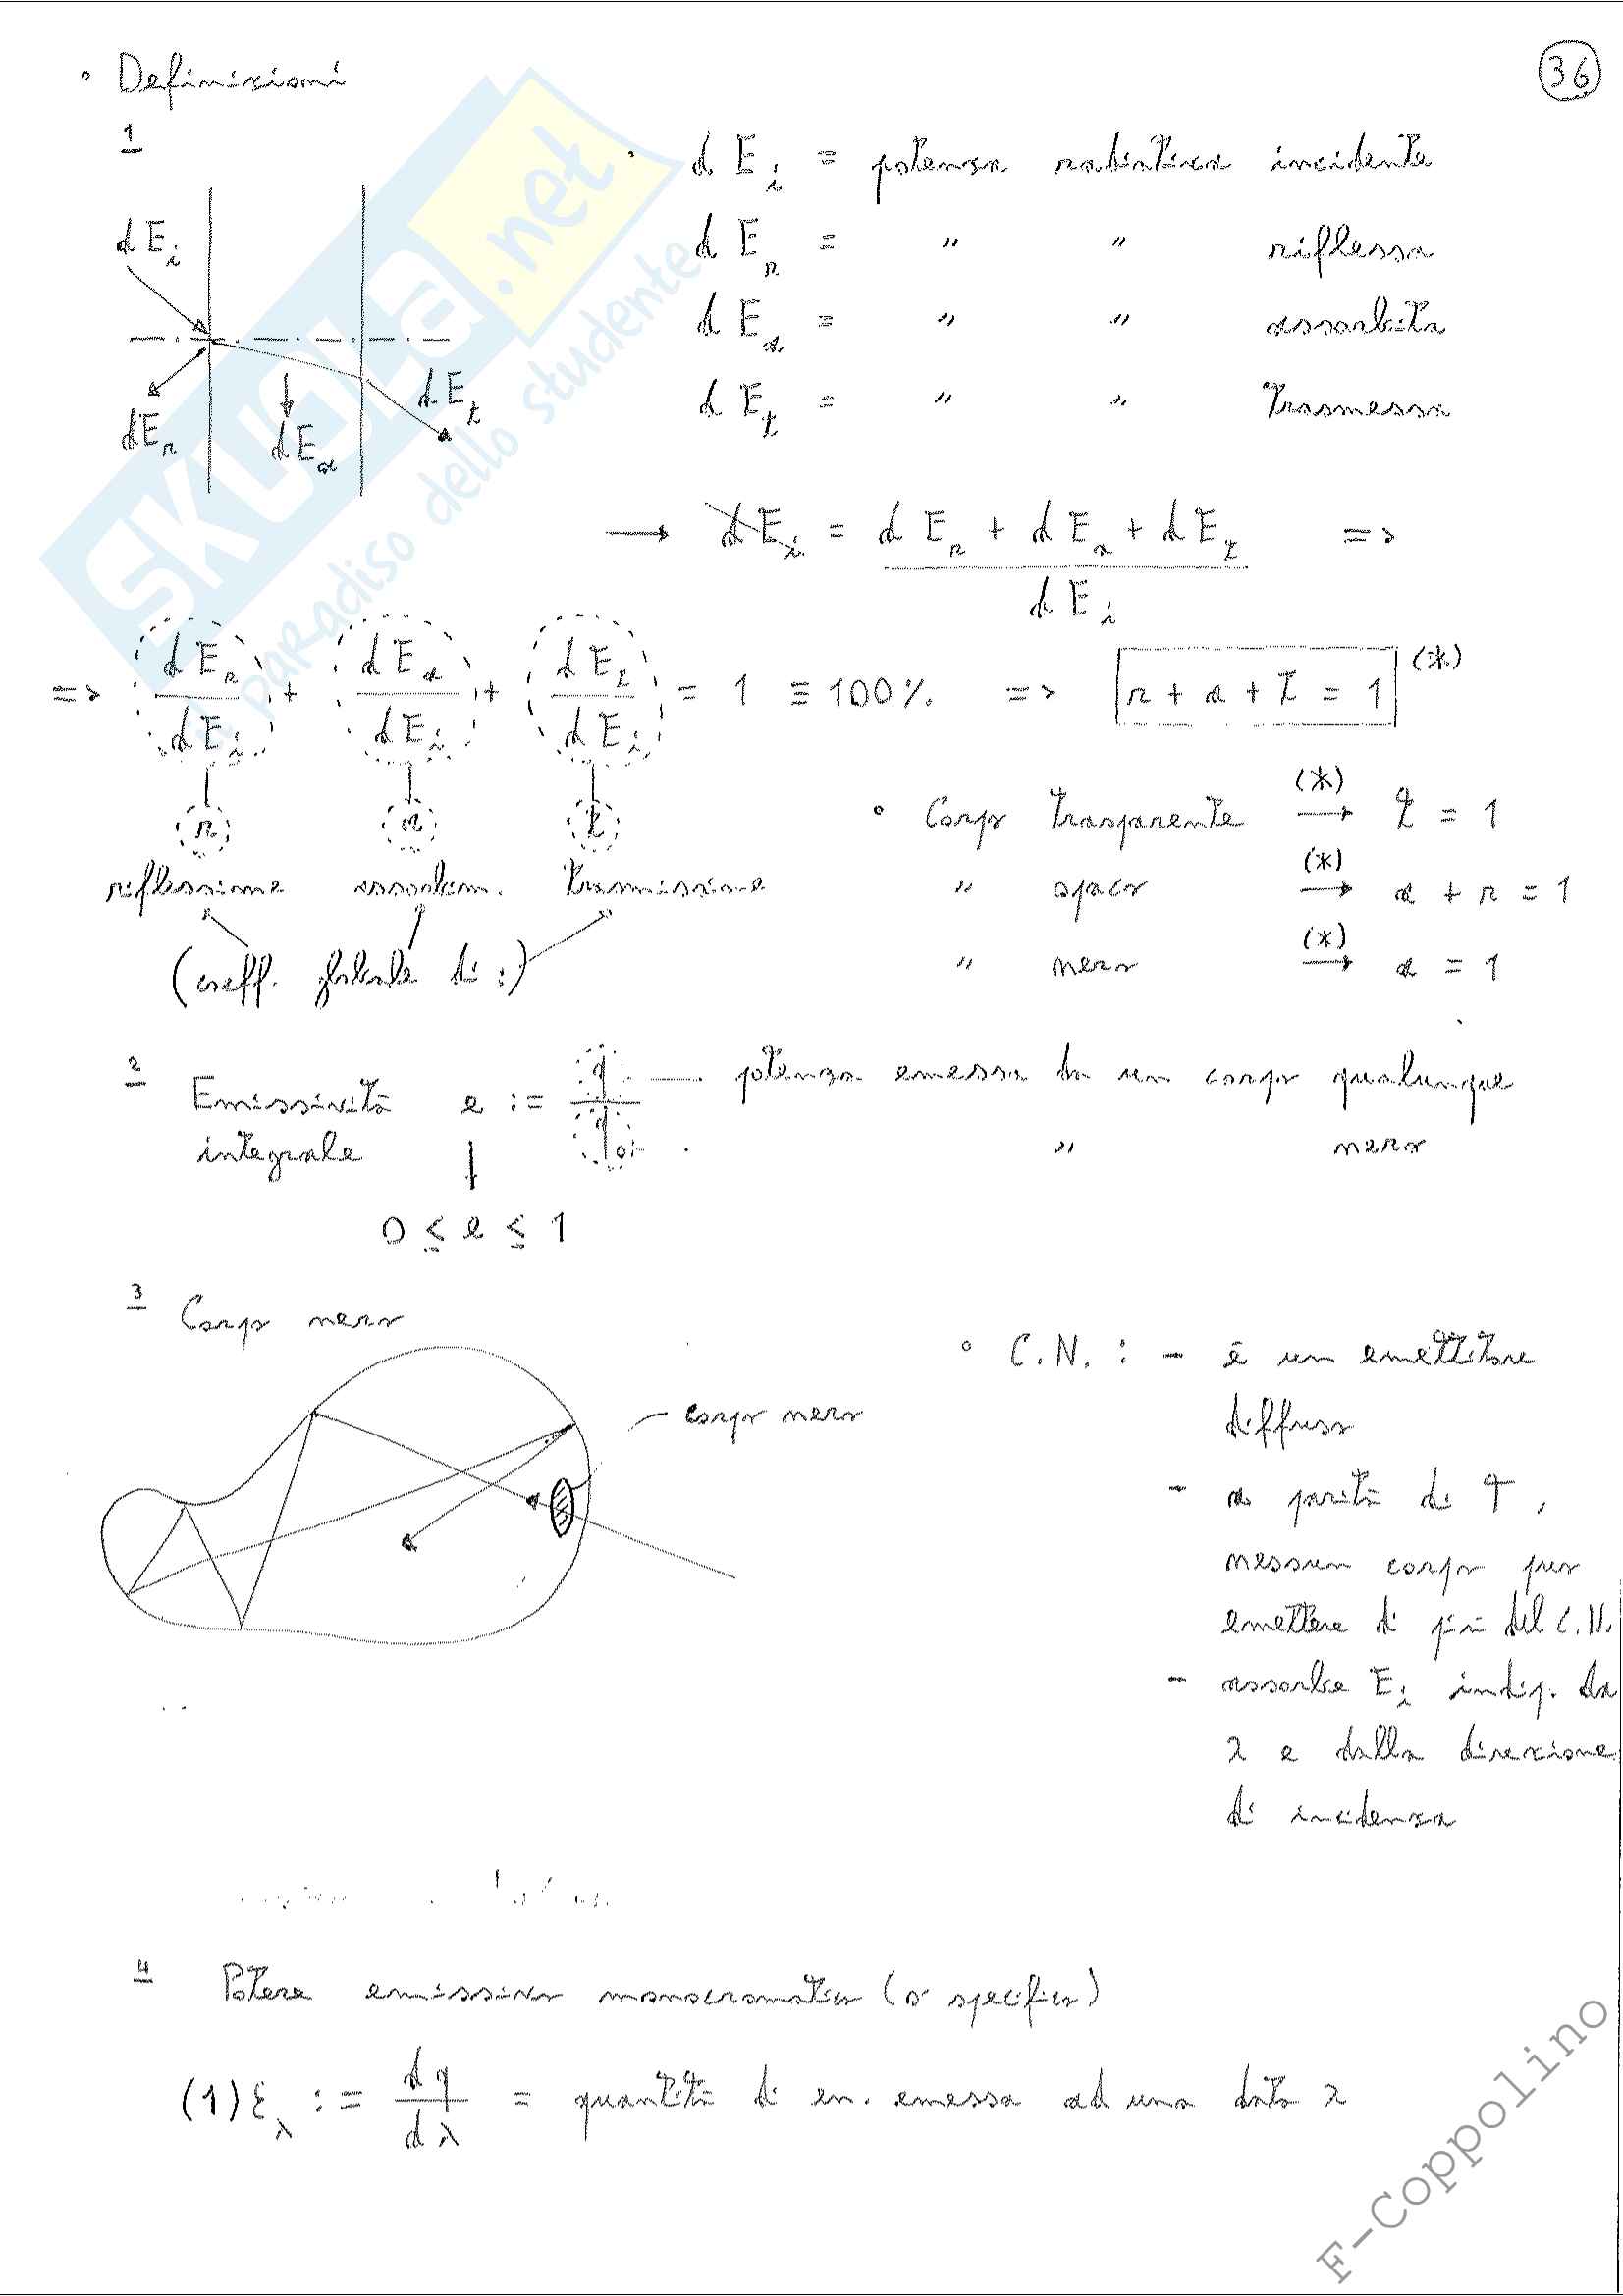 • Definizioni
36
1
dE_i
dE_r
dE_a
dE_t
• dE_i = potenza radiativa incidente
dE_r = " " riflessa
dE_a = " " assorbita
dE_t = " " trasmessa
→ dE_i = dE_r + dE_a + dE_t / dE_i =>
=> dE_r/dE_i + dE_a/dE_i + dE_t/dE_i = 1 ≡ 100% => r + a + t = 1 (*)
r a t
riflessione assorbim. trasmissione
(coeff. globale di:)
° Corpo trasparente (*) → t = 1
" opaco (*) → a + r = 1
" nero (*) → a = 1
2 Emissività e := q/q_0 — potenza emessa da un corpo qualunque
integrale " nero
0 ≤ e ≤ 1
3 Corpo nero
corpo nero
° C.N. : - è un emettitore
diffuso
- a parità di T,
nessun corpo può
emettere di più del C.N.
- assorbe E_i indip. da
λ e dalla direzione
di incidenza
4 Potere emissivo monocromatico (o specifico)
(1) ε_λ := dq/dλ = quantità di en. emessa ad una data λ
SKUOLA.net
il paradiso dello studente
F-Coppolino